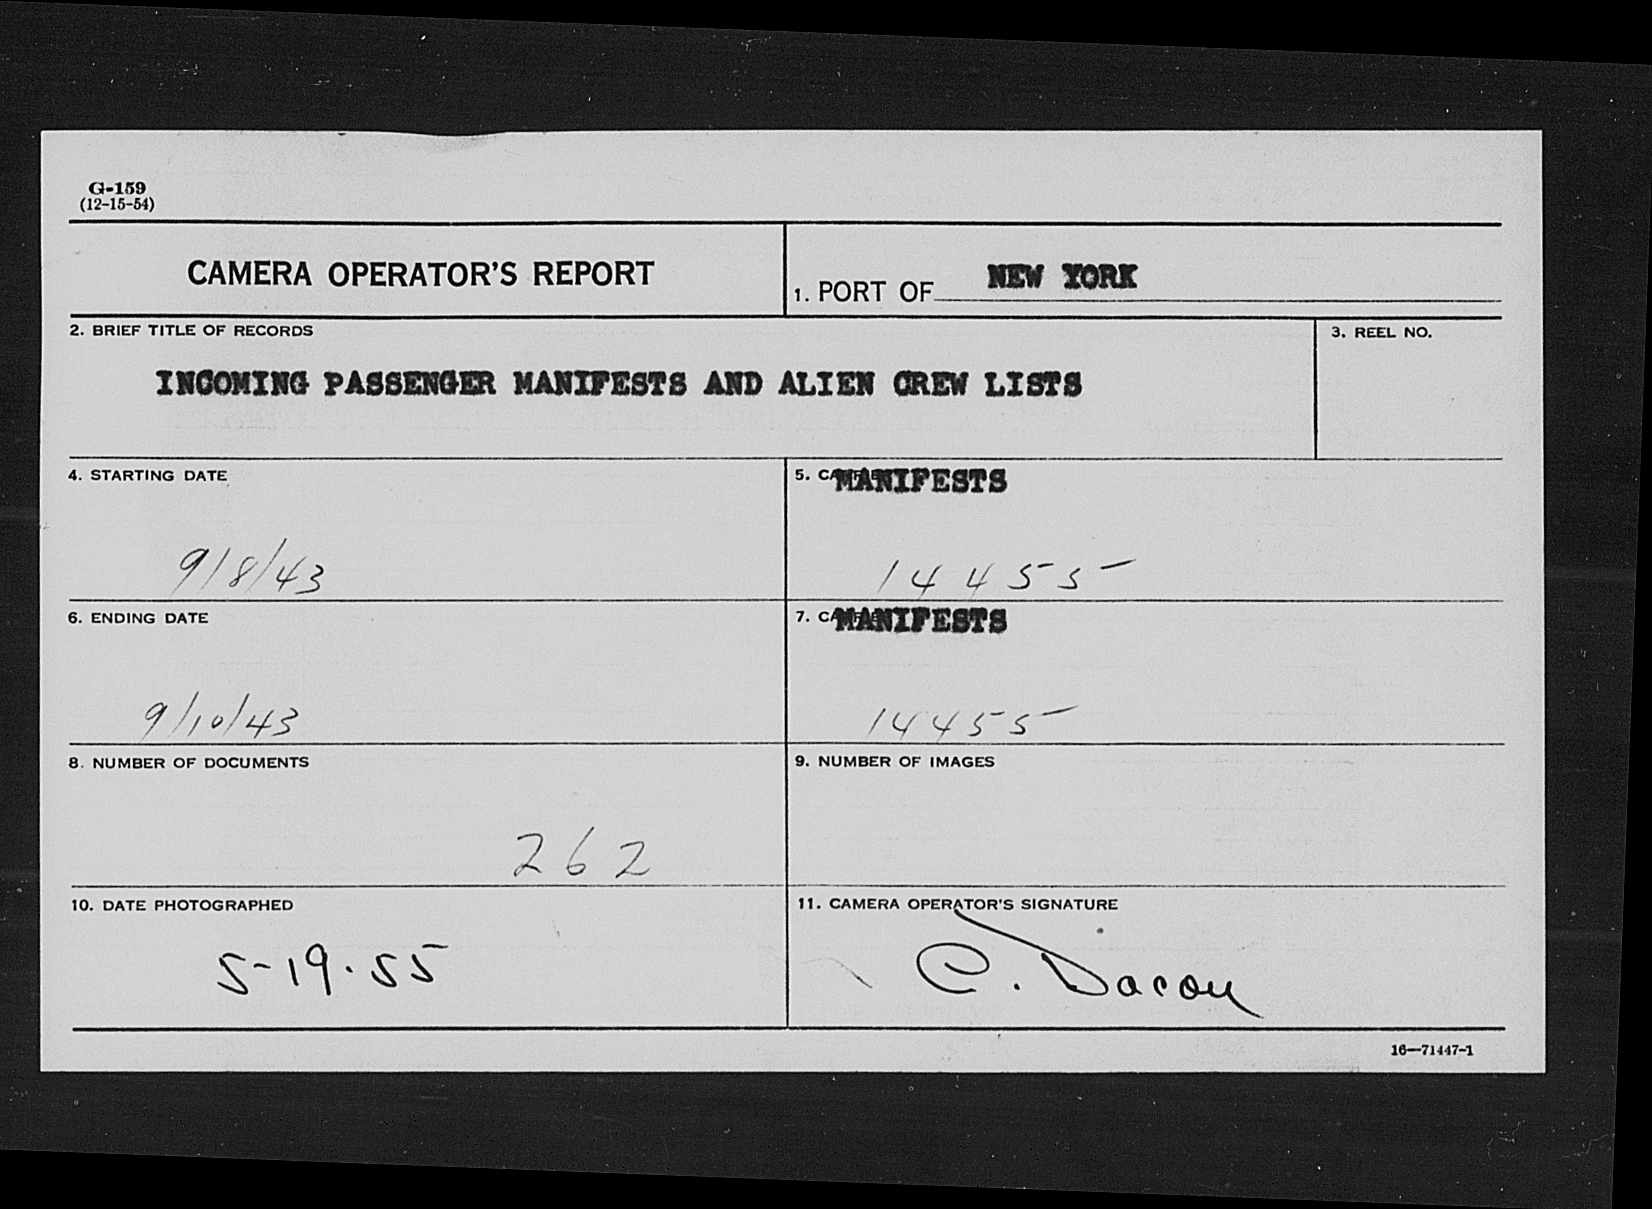 G-159
(12-15-54)
CAMERA OPERATOR'S REPORT
1. PORT OF NEW YORK
2. BRIEF TITLE OF RECORDS
3. REEL NO.
INCOMING PASSENGER MANIFESTS AND ALIEN CREW LISTS
4. STARTING DATE
5. MANIFESTS
9/8/43
14455
6. ENDING DATE
7. MANIFESTS
9/10/43
14455
8. NUMBER OF DOCUMENTS
9. NUMBER OF IMAGES
262
10. DATE PHOTOGRAPHED
11. CAMERA OPERATOR'S SIGNATURE
5-19-55
C. Dacou
16—71447-1